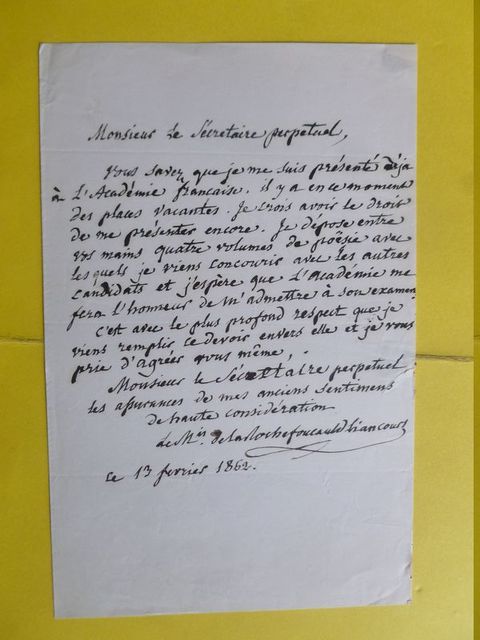 Monsieur le Sécretaire perpetuel,
Vous savez que je me suis présenté déja
à L'Académie française. il y a en ce moment
des places vacantes. Je crois avoir le droit
de me présenter encore. Je dépose entre
vos mains quatre volumes de poësie avec
les quels je viens concourir avec les autres
candidats et j'espère que L'Académie me
fera l'honneur de m'admettre à son examen
c'est avec le plus profond respect que je
viens remplir ce devoir envers elle et je vous
prie d'agréer vous même,
Monsieur le Sécretaire perpetuel,
les assurances de mes anciens sentimens
de haute considération
le Mis de la Rochefoucauld Liancourt
ce 13 fevrier 1862.